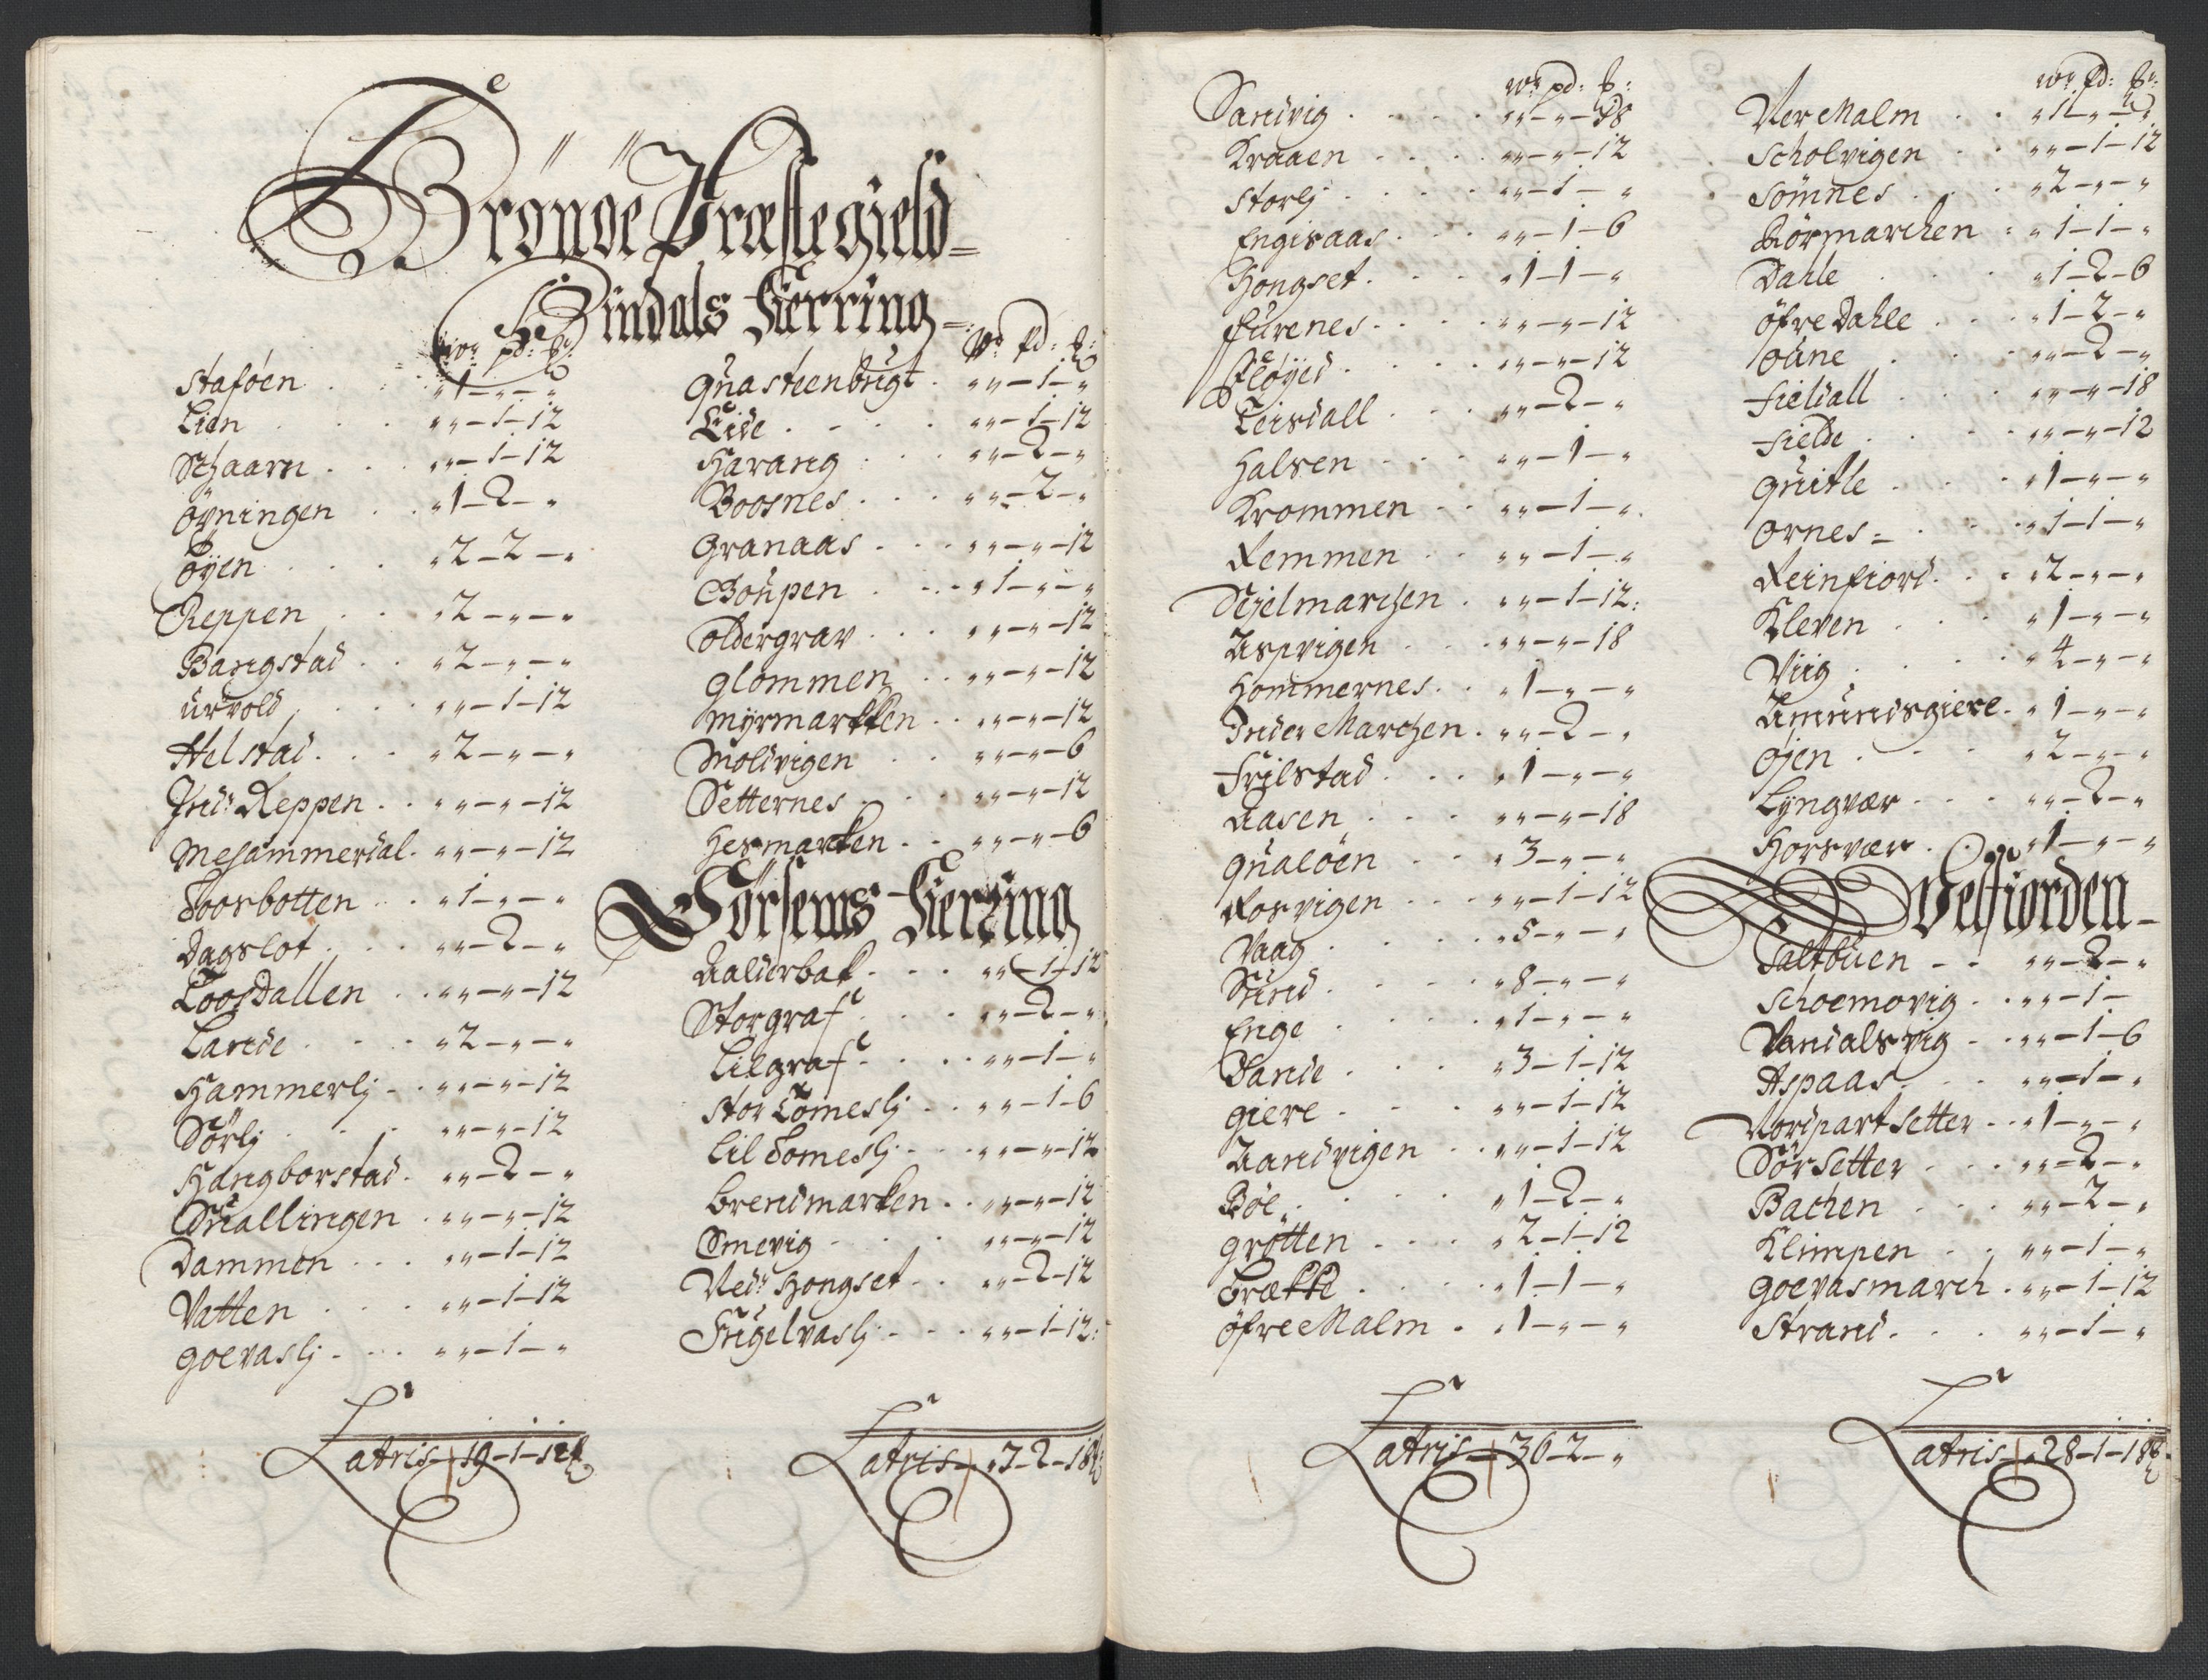 Brönöe Præstegield
Bindals Fierring
wr: pd: ℔:
Staföen . . „1-„-„
Lien . . . „„-1-12
Schaarn . . . „„-1-12
Öyningen . . „1-2-„
Öyen . . . „2-2-„
Reppen . . „2-„-„
Bangstad . . „2-„-„
Urvold . . . „„-1-12
Helstad . . . „2-„-„
Indr Reppen . . „„-„-12
Mesammerdal . „„-„-12
Toosbotten . . „1-„-„
Dagslot . . . „„-2-„
Toosdallen . . „„-„-12
Lande . . . „2-„-„
Hammerlj . . „„-„-12
Sörlj . . . „„-„-12
Hangborstad . „„-2-„
Snallingen . „„-„-12
Dammen . . . „„-1-12
Vatten . . . „„-1-12
goevaslj . . . „„-1-„
Latris 19-1-12
Wr: pd: ℔:
Quasteenbrigt . „„-1-„
Lide . . . „„-1-12
Harang . . . „„-2-„
Boosnes . . . „„-2-„
Granaas . . . „„-„-12
Goupen . . . „1-„-„
oldergrav . . . „„-„-12
glommen . . „„-„-12
Myrmarkken . . „„-„-12
Moldvigen . . „„-„-6
Setternes . . . „„-„-12
Hesmarken . . „„-„-6
Sörsems Fierring
Aalderbak . . . „„-1-12
Storgraf . . . „„-2-„
Lilgraf . . . „„-1-„
Stor Tömeslj . . „„-1-6
Lil Tomeslj . . . „„-„-12
Brendmarken . . „„-„-12
Smevig . . . „„-„-12
Nedr Hongset . . „„-2-12
Fugelvaslj . . . „„-1-12
Latris „7-2-18℔
wr: pd: ℔:
Sandvig . . . . „„-„-18
Kraaen . . . . „„-„-12
Storlj . . . . „„-1-„
Engisaas . . . „„-1-6
Hongset . . . „1-1-„
Furenes . . . „„-„-12
Flöyed . . . . „„-„-12
Teisdall . . . „„-2-„
Halsen . . . „„-1-„
Krommen . . „„-1-„
Remmen . . „„-1-„
Schjelmarchen . „„-1-12
Aspvigen . . . „„-„-18
Hommernes . . „1-„-„
Inder Marchen . „„-2-„
Frilstad . . . „1-„-„
Aasen . . . „„-„-18
Qualöen . . „3-„-„
Rosvigen . . . „„-1-12
Vaag . . . . „5-„-„
Sund . . . . „8-„-„
Enge . . . . „1-„-„
Sande . . . „3-1-12
giere . . . „„-1-12
Aandvigen . . „„-1-12
Böe . . . . „1-2-„
grötten . . . „2-1-12
Trætte . . . . „1-1-„
öfre Malm . . „1-„-„
Latris 36-2-„
wr: pd: ℔:
Ner Malm . . „1-„-„
Scholvigen . . „„-1-12
Sömnes . . . „2-„-„
Rörmarchen . „1-1-„
Dahle . . . „1-2-6
öfre Dahle . . . „1-2-„
oune . . . „„-2-„
Fieldall . . . „„-„-18
Fielde . . . „„-„-12
Quitle . . . „1-„-„
Ornes . . . „1-1-„
Reinfiord . . . „2-„-„
Kleven . . . „1-„-„
Viig . . . „4-„-„
Amundsgiere . „1-„-„
Ojen . . . „2-„-„
Lyngvær . . . „„-2-„
Horsvær . . „1-„-„
Velfiorden
Saltbuen . . „„-2-„
Schoemovig . . „„-1-
Vandalsvig . . „„-1-6
Aspaas . . . „„-1-„
Nordpart Setter . . „1-„-„
Sör Setter . . . „„-2-„
Bachen . . . „„-2-„
Klimpen . . „„-1-„
Goevasmarch . „„-1-12
Strand . . . „„-1-„
Latris „28-1-18℔